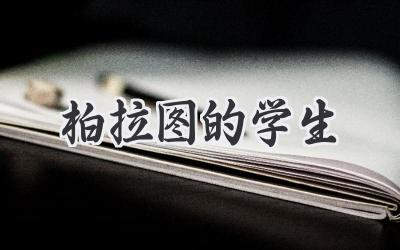 柏拉图的学生